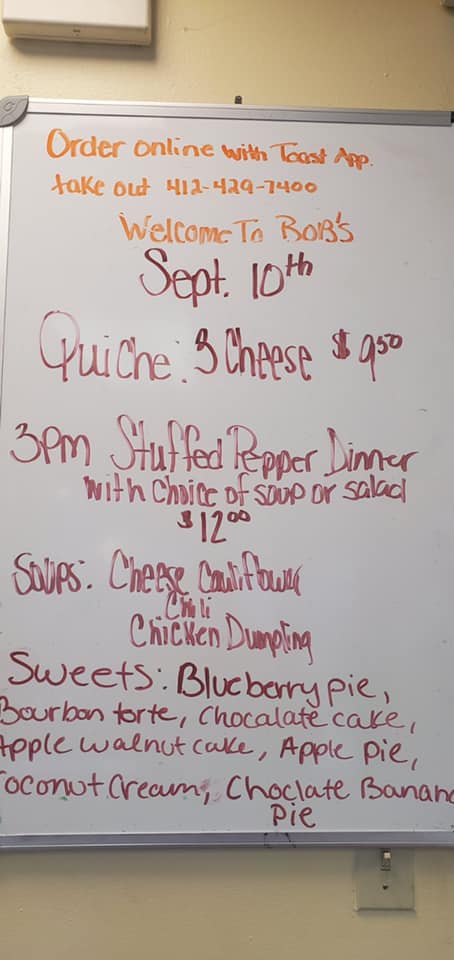 Order online with Toast App.
take out 412-429-7400
Welcome To BOB'S
Sept. 10th
Quiche: 3 Cheese $9.50
3pm Stuffed Pepper Dinner
with choice of soup or salad
$12.00
Soups: Cheese Cauliflower
Chili
Chicken Dumpling
Sweets: Blueberry pie,
Bourbon torte, Chocalate cake,
Apple walnut cake, Apple Pie,
Coconut Cream, Choclate Banana
Pie